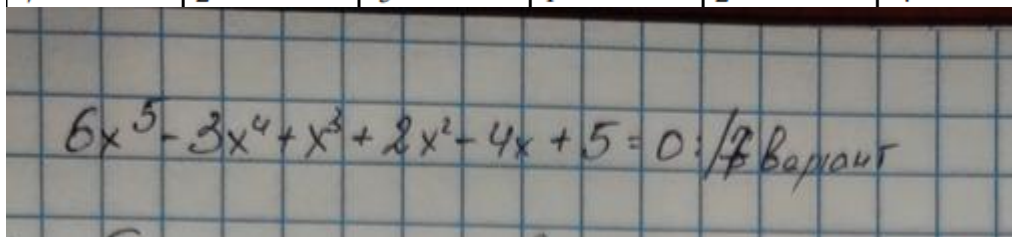 6x⁵ - 3x⁴ + x³ + 2x² - 4x + 5 = 0 : / варіант